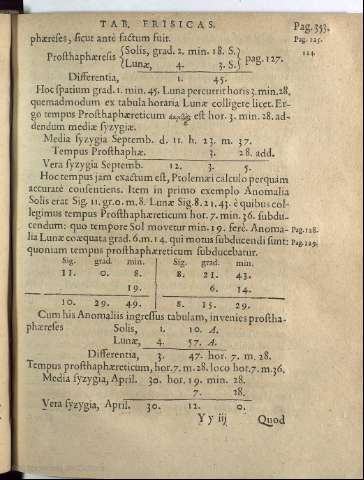 TAB. FRISICAS. Pag. 353.
phæreses, sicut antè factum fuit. Pag. 125.
Prosthaphæresis {Solis, grad. 2. min. 18. S.} pag. 127. 124.
{Lunæ, 4. 3. S.}
Differentia, 1. 45.
Hoc spatium grad. 1. min. 45. Luna percurrit horis 3. min. 28,
quemadmodum ex tabula horaria Lunæ colligere licet. Er-
go tempus Prosthaphæreticum est hor. 3. min. 28. ad-
dendum mediæ syzygiæ.
Media syzygia Septemb. d. 11. h. 23. m. 37.
Tempus Prosthaphæ. 3. 28. add.
Vera syzygia Septemb. 12. 3. 5.
Hoc tempus jam exactum est, Ptolemæi calculo perquàm
accuratè consentiens. Item in primo exemplo Anomalia
Solis erat Sig. 11. gr. 0. m. 8. Lunæ Sig. 8. 21. 43. è quibus col-
legimus tempus Prosthaphæreticum hor. 7. min. 36. subdu-
cendum: quo tempore Sol movetur min. 19. ferè. Anoma- Pag. 128.
lia Lunæ coæquata grad. 6. m. 14. qui motus subducendi sunt: Pag. 129.
quoniam tempus prosthaphæreticum subducebatur.
Sig. grad. min. Sig. grad. min.
11. 0. 8. 8. 21. 43.
19. 6. 14.
10. 29. 49. 8. 15. 29.
Cum his Anomaliis ingressus tabulam, invenies prostha-
phæreses Solis, 1. 10. A.
Lunæ, 4. 57. A.
Differentia, 3. 47. hor. 7. m. 28.
Tempus prosthaphæreticum, hor. 7. m. 28. loco hor. 7. m. 36.
Media syzygia, April. 30. hor. 19. min. 28.
7. 28.
Vera syzygia, April. 30. 12. 0.
Y y iij Quod